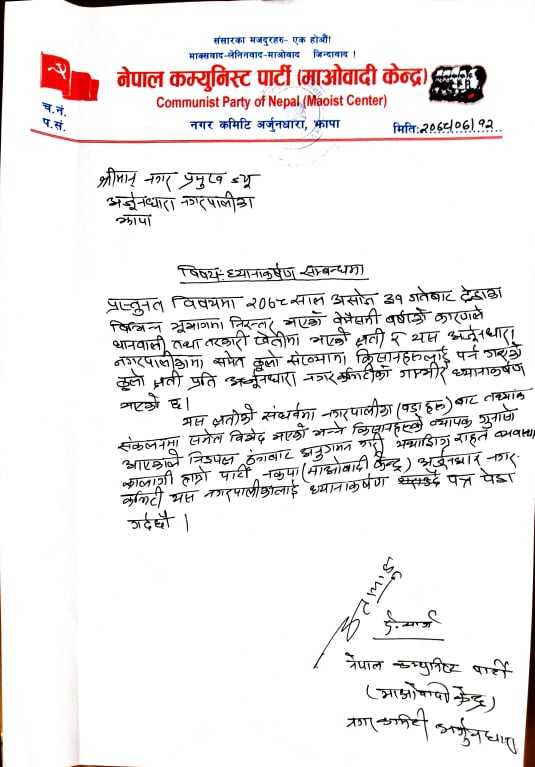 संसारका मजदुरहरु- एक होऔं!
माक्सवाद-लेनिनवाद-माओवाद जिन्दावाद !
नेपाल कम्युनिस्ट पार्टी (माओवादी केन्द्र)
Communist Party of Nepal (Maoist Center)
च.नं.
प.सं.
नगर कमिटि अर्जुनधारा, झापा
मिति: २०७८/०६/१२
श्रीमान् नगर प्रमुख ज्यू
अर्जुनधारा नगरपालीका
झापा
विषय:- ध्यानाकर्षण सम्बन्धमा
प्रस्तुत विषयमा २०७८ साल असोज ३१ गतेबाट देशका
विभिन्न भूभागमा निरन्तर भएको बेमौसमी बर्षाको कारणले
धानवाली तथा तरकारी खेतीमा भएको क्षती र यस अर्जुनधारा
नगरपालीकामा समेत ठुलो संख्यामा किसानहरुलाई पर्न गएको
ठुलो क्षती प्रति अर्जुनधारा नगर कमिटीको गम्भीर ध्यानाकर्षण
भएको छ।
यस क्षतीको सन्दर्भमा नगरपालीका (वडा हरु) बाट तथ्यांक
संकलनमा समेत विभेद भएको भन्ने किसानहरुको व्यापक गुनासो
आएकोले निष्पक्ष ढंगबाट अनुगमन गरी राहत व्यवस्था
कालागी हाम्रो पार्टी नेकपा (माओवादी केन्द्र) अर्जुनधारा नगर
कमिटी यस नगरपालीकालाई ध्यानाकर्षण पत्र पेश
गर्दछौ।
ई.न्चार्ज
नेपाल कम्युनिष्ट पार्टी
(माओवादी केन्द्र)
नगर कमिटी अर्जुनधारा